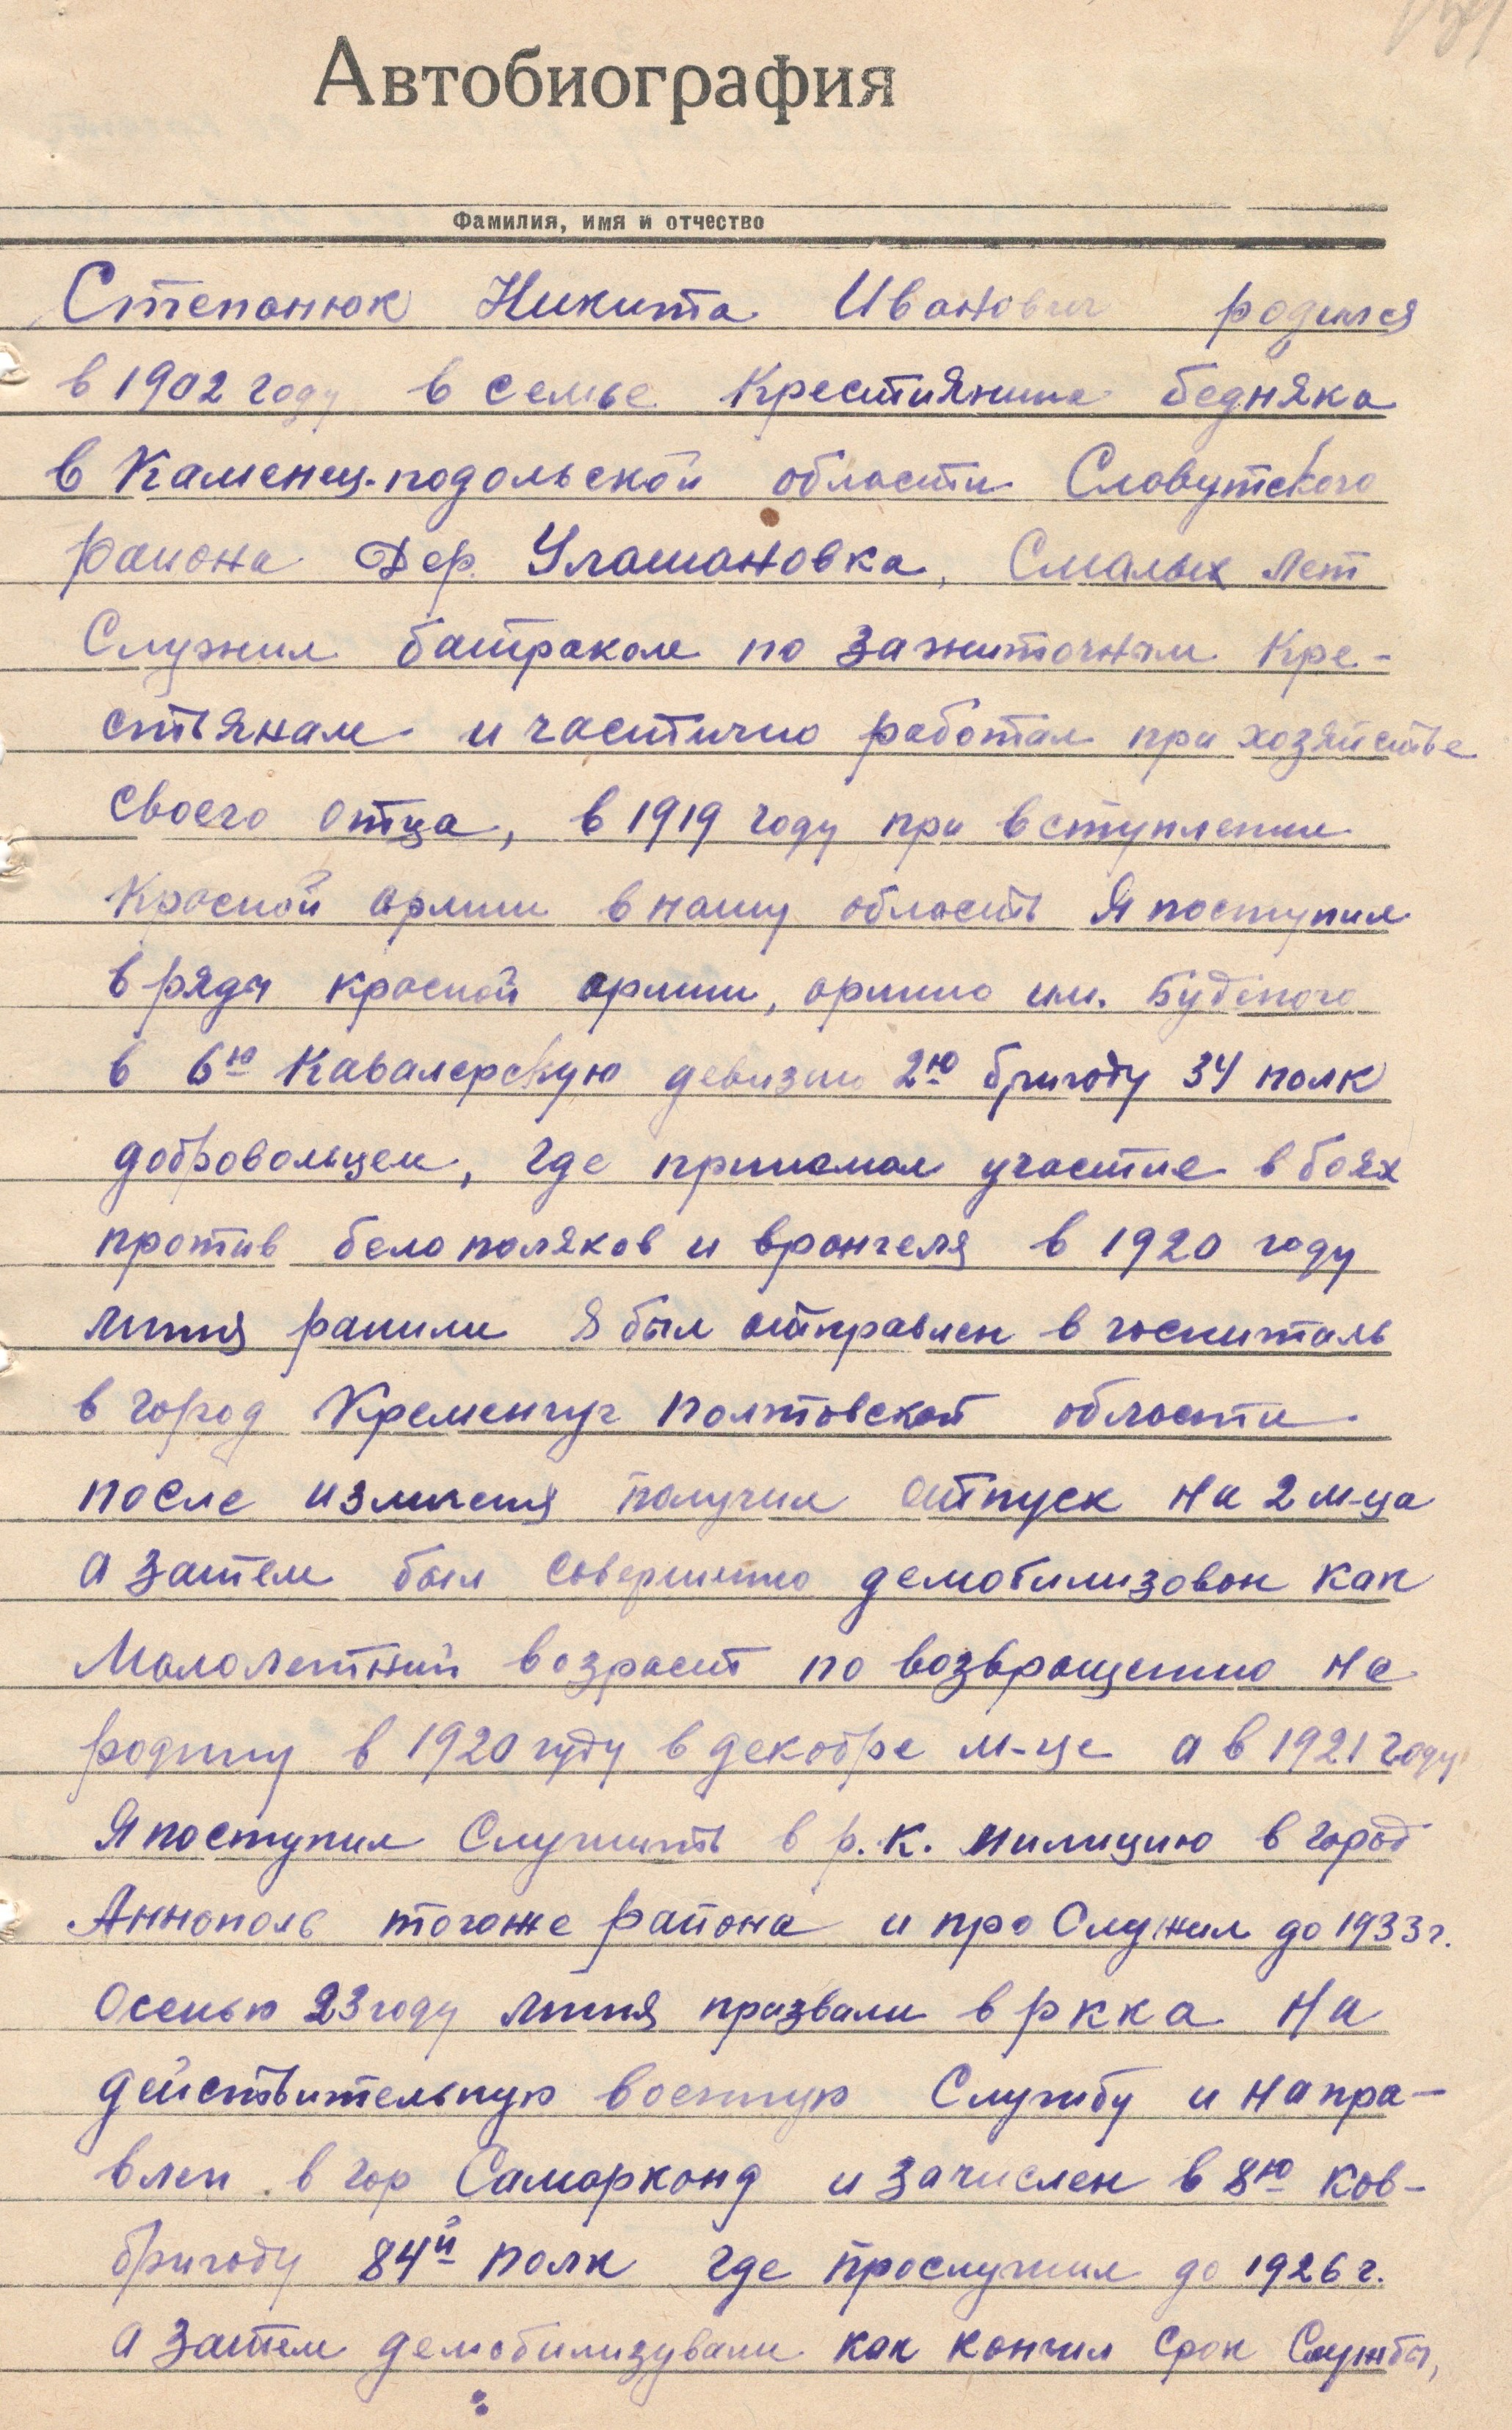 Автобиография
Фамилия, имя и отчество
Степанюк Никита Иванович родился
в 1902 году в семье Крестиянина бедняка
в Каменец-подольской области Славутского
района Дер. Улашановка, Смалых лет
Служил батраком по зажиточным Кре-
стьянам и частично работал при хозяйстве
своего отца, в 1919 году при вступлении
Красной армии в нашу область Я поступил
в ряды красной армии, армию им. Буденого
в 6ю Кавалерскую девизию 2ю бригаду 34 полк
добровольцем, где принемал участие в боях
против белополяков и врангеля в 1920 году
миня ранили Я был отправлен в госпиталь
в город Кременчуг Полтовской области
после изличеня получил отпуск на 2 м-ца
а затем был совершенно демобилизован как
Малолетний возраст по возвращению на
родину в 1920 году в декабре м-це а в 1921 году
Я поступил Служить в р.к. милицию в город
Аннополь тогоже района и про Служил до 1933 г.
Осенью 23 году миня призвали в ркка на
действительную военную Службу и напра-
влен в гор Самарканд и зачислен в 8ю кав-
бригаду 84й полк где прослужил до 1926 г.
а затем демобилизували как кончил срок Службы,